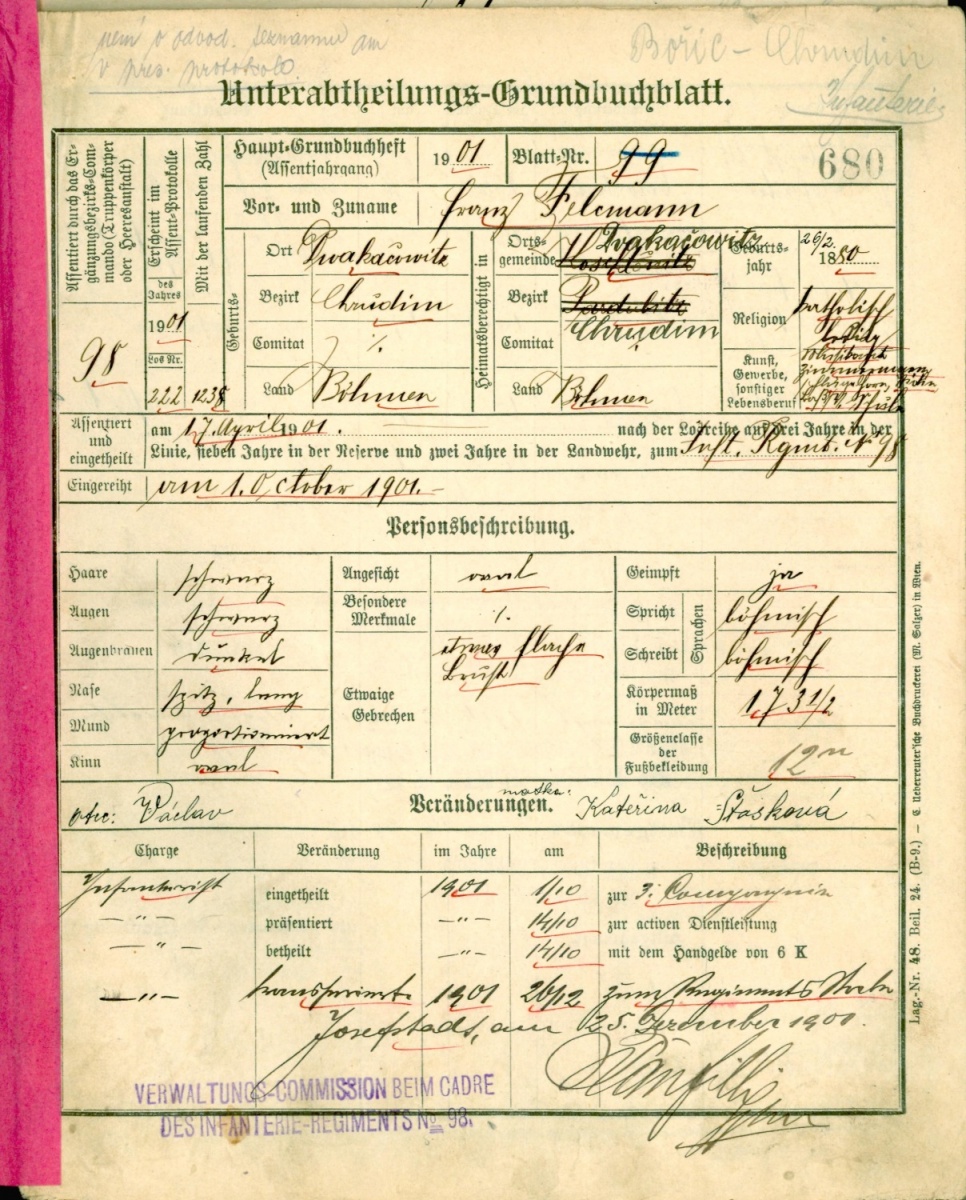 není o odvod. seznamu am
v pres. protokolo
Bořic - Chrudim
Infanterie
Unterabtheilungs-Grundbuchblatt.
Assentiert durch das Ergänzungsbezirks-Commando (Truppenkörper oder Heeresanstalt)
98
Erscheint im Assent-Protokolle
des Jahres
1901
Los Nr.
222
Mit der laufenden Zahl
1238
Haupt-Grundbuchheft (Assentjahrgang)
1901
Blatt-Nr.
99
680
Vor- und Zuname
Franz Felcmann
Geburts-
Ort Dwakačowitz
Bezirk Chrudim
Comitat ./.
Land Böhmen
Heimatsberechtigt in
Ortsgemeinde Dwakačowitz
Bezirk Pardubitz
Chrudim
Comitat
Land Böhmen
Geburtsjahr 26/2. 1880
Religion katholisch
ledig
Kunst, Gewerbe, sonstiger Lebensberuf
Assentiert und eingetheilt
am 17. April 1901. nach der Losreihe auf drei Jahre in der
Linie, sieben Jahre in der Reserve und zwei Jahre in der Landwehr, zum Inft. Rgmt. № 98
Eingereiht am 1. October 1901.-
Personsbeschreibung.
Haare schwarz
Augen schwarz
Augenbrauen dunkel
Nase spitz, lang
Mund proportioniert
Kinn oval
Angesicht oval
Besondere Merkmale ./.
Etwaige Gebrechen etwas flache
Brust
Geimpft ja
Sprachen
Spricht böhmisch
Schreibt böhmisch
Körpermaß in Meter 1,73 1/2
Größenclasse der Fußbekleidung 12
otec: Václav
Veränderungen.
matka: Kateřina Štosková
Charge Veränderung im Jahre am Beschreibung
Infanterist eingetheilt 1901 1/10 zur 3. Compagnie
—"— präsentiert —"— 14/10 zur activen Dienstleistung
—"— betheilt —"— 14/10 mit dem Handgelde von 6 K
—"— transferiert 1901 26/12 zum Regiments Stabe
Josefstadt, am 25. Dezember 1901.
VERWALTUNGS-COMMISSION BEIM CADRE
DES INFANTERIE-REGIMENTS No 98.
Lag.-Nr. 48. Beil. 24. (B-9.) — C. Ueberreuter'sche Buchdruckerei (M. Salzer) in Wien.